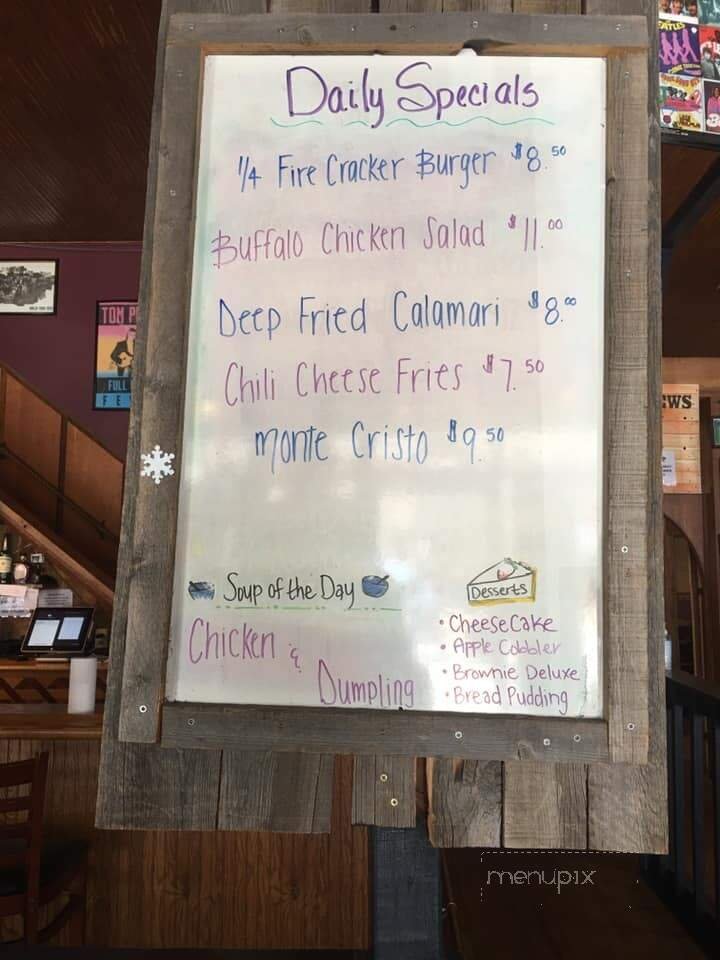 Daily Specials
1/4 Fire Cracker Burger $8.50
Buffalo Chicken Salad $11.00
Deep Fried Calamari $8.00
Chili Cheese Fries $7.50
Monte Cristo $9.50
Soup of the Day
Chicken &
Dumpling
Desserts
• CheeseCake
• Apple Cobbler
• Brownie Deluxe
• Bread Pudding
TOM P
FULL
FE
EWS
menupix